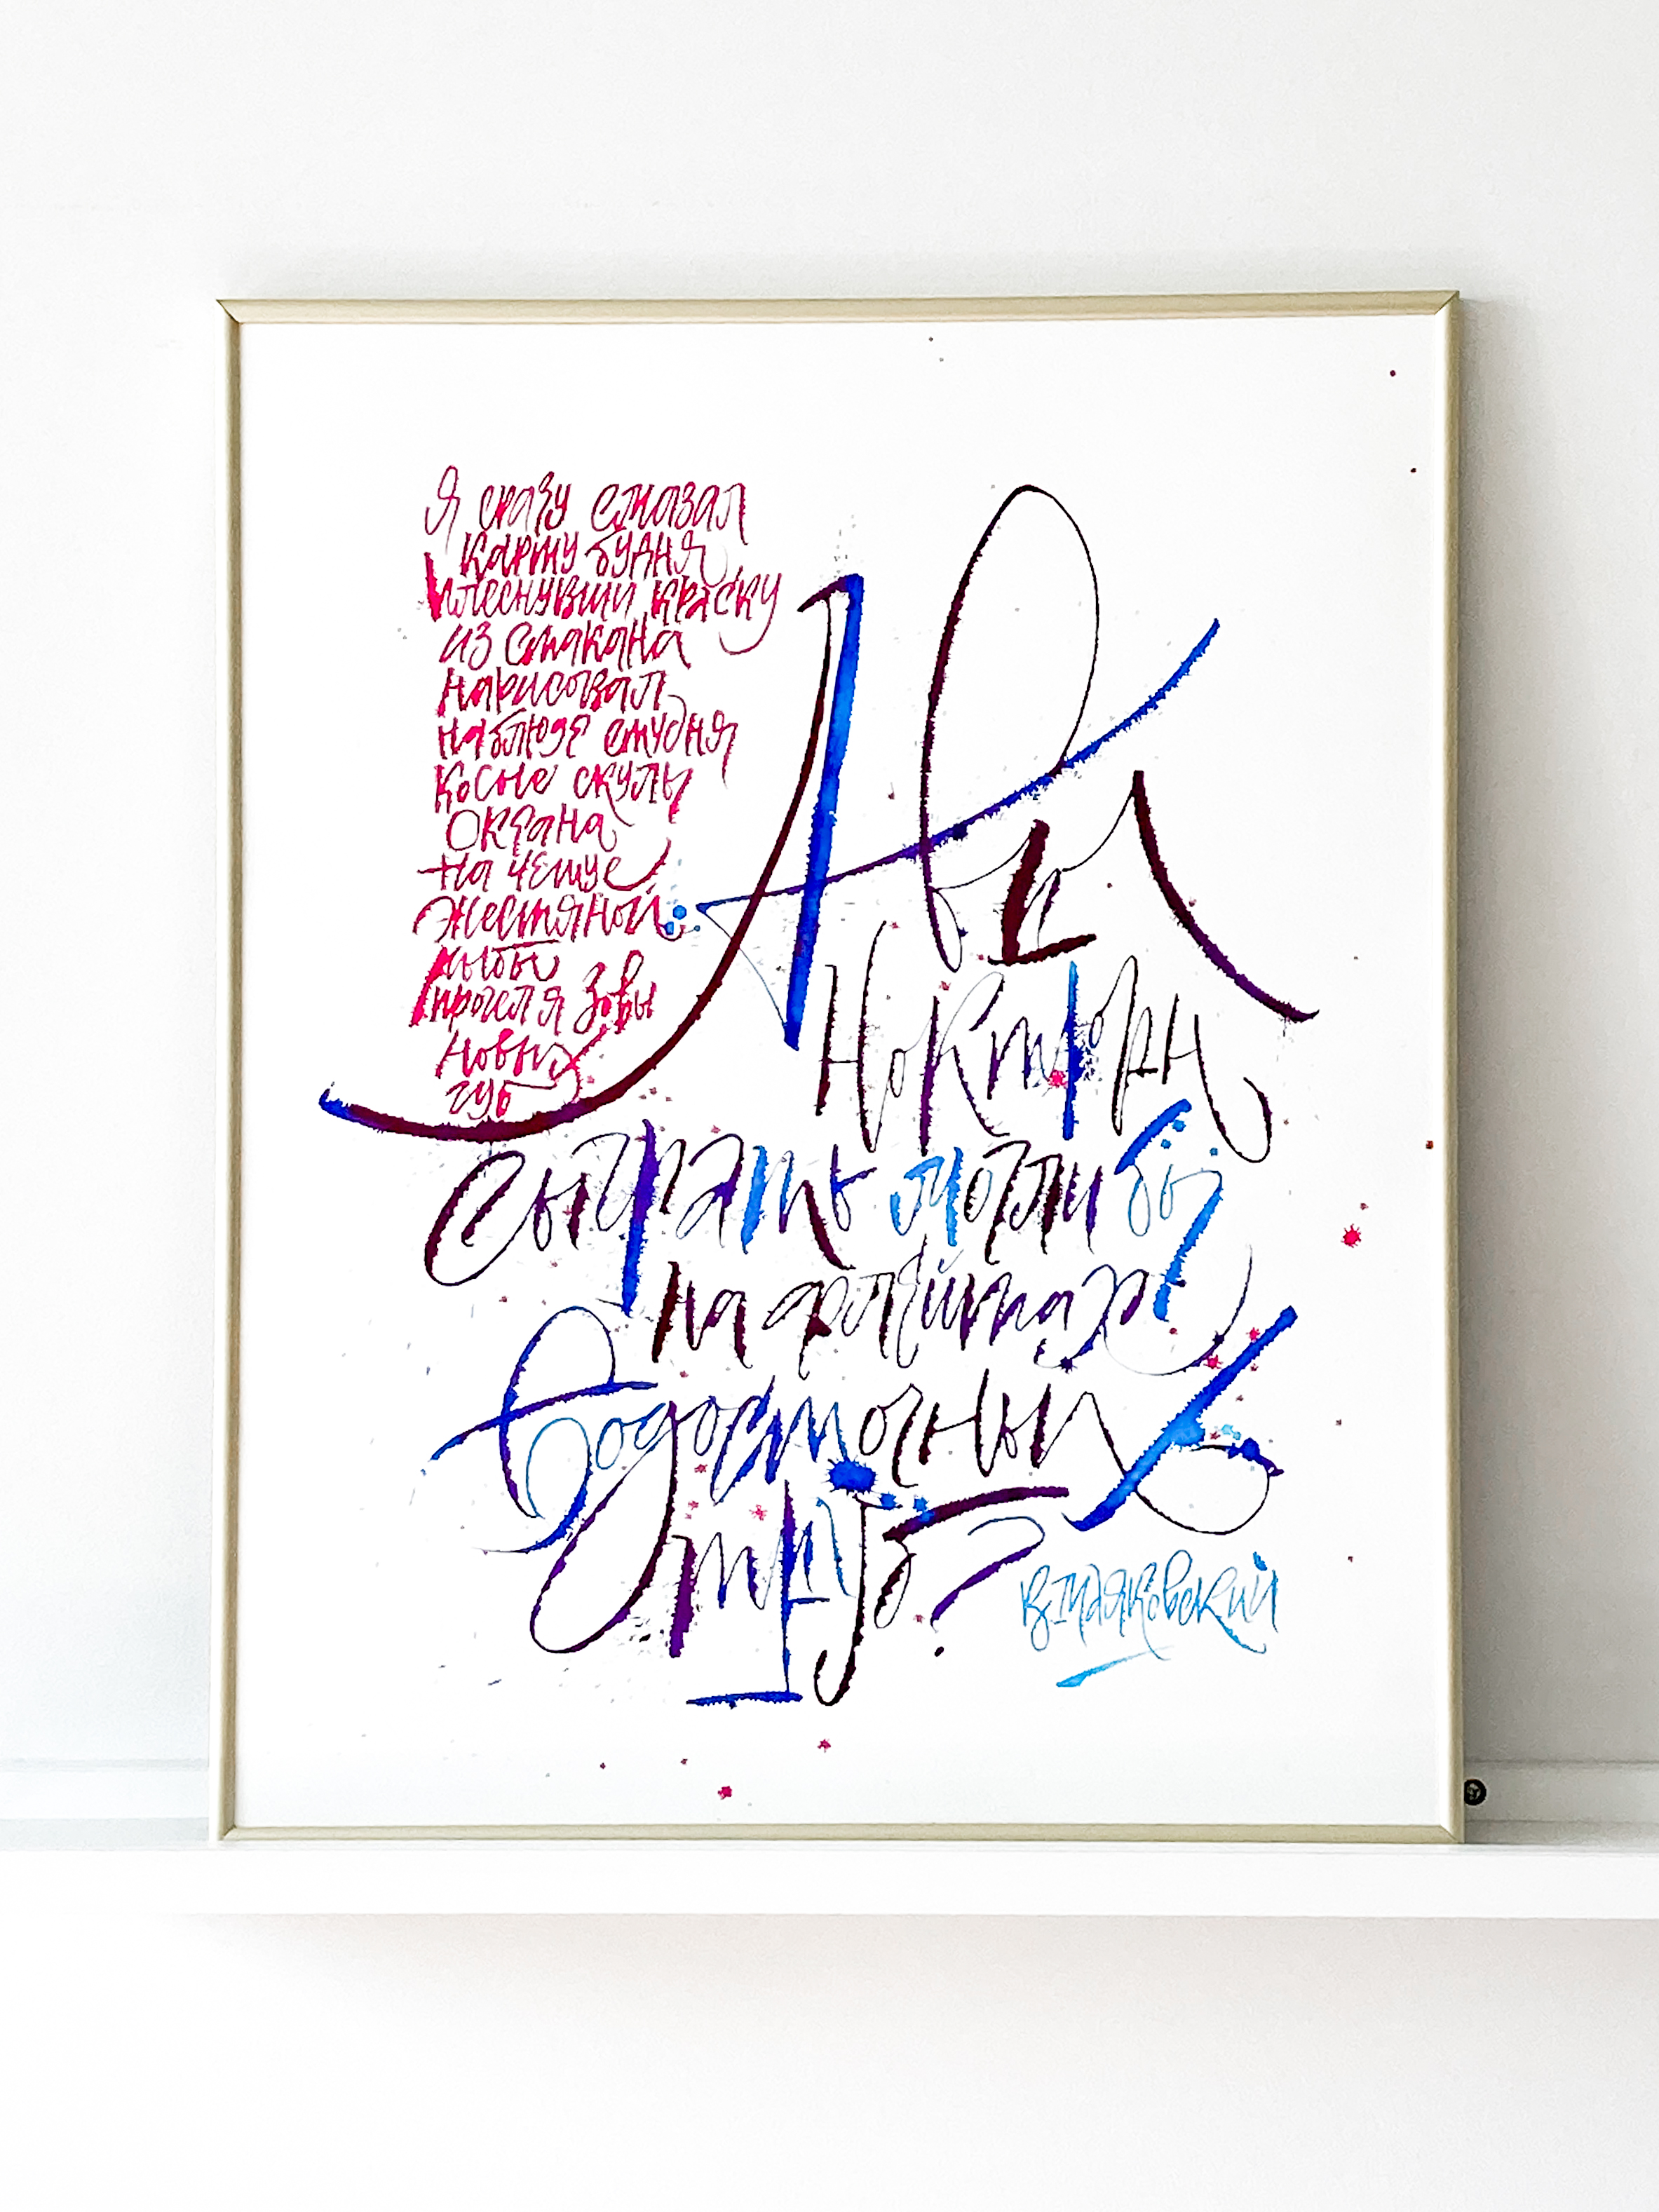 Я сразу смазал
карту будня
плеснувши краску
из стакана
нарисовал
на блюде студня
косые скулы
океана
на чешуе
жестяной
рыбы
прочел я зовы
новых
губ
А вы
ноктюрн
сыграть могли бы
на флейтах
водосточных
труб?
В. Маяковский